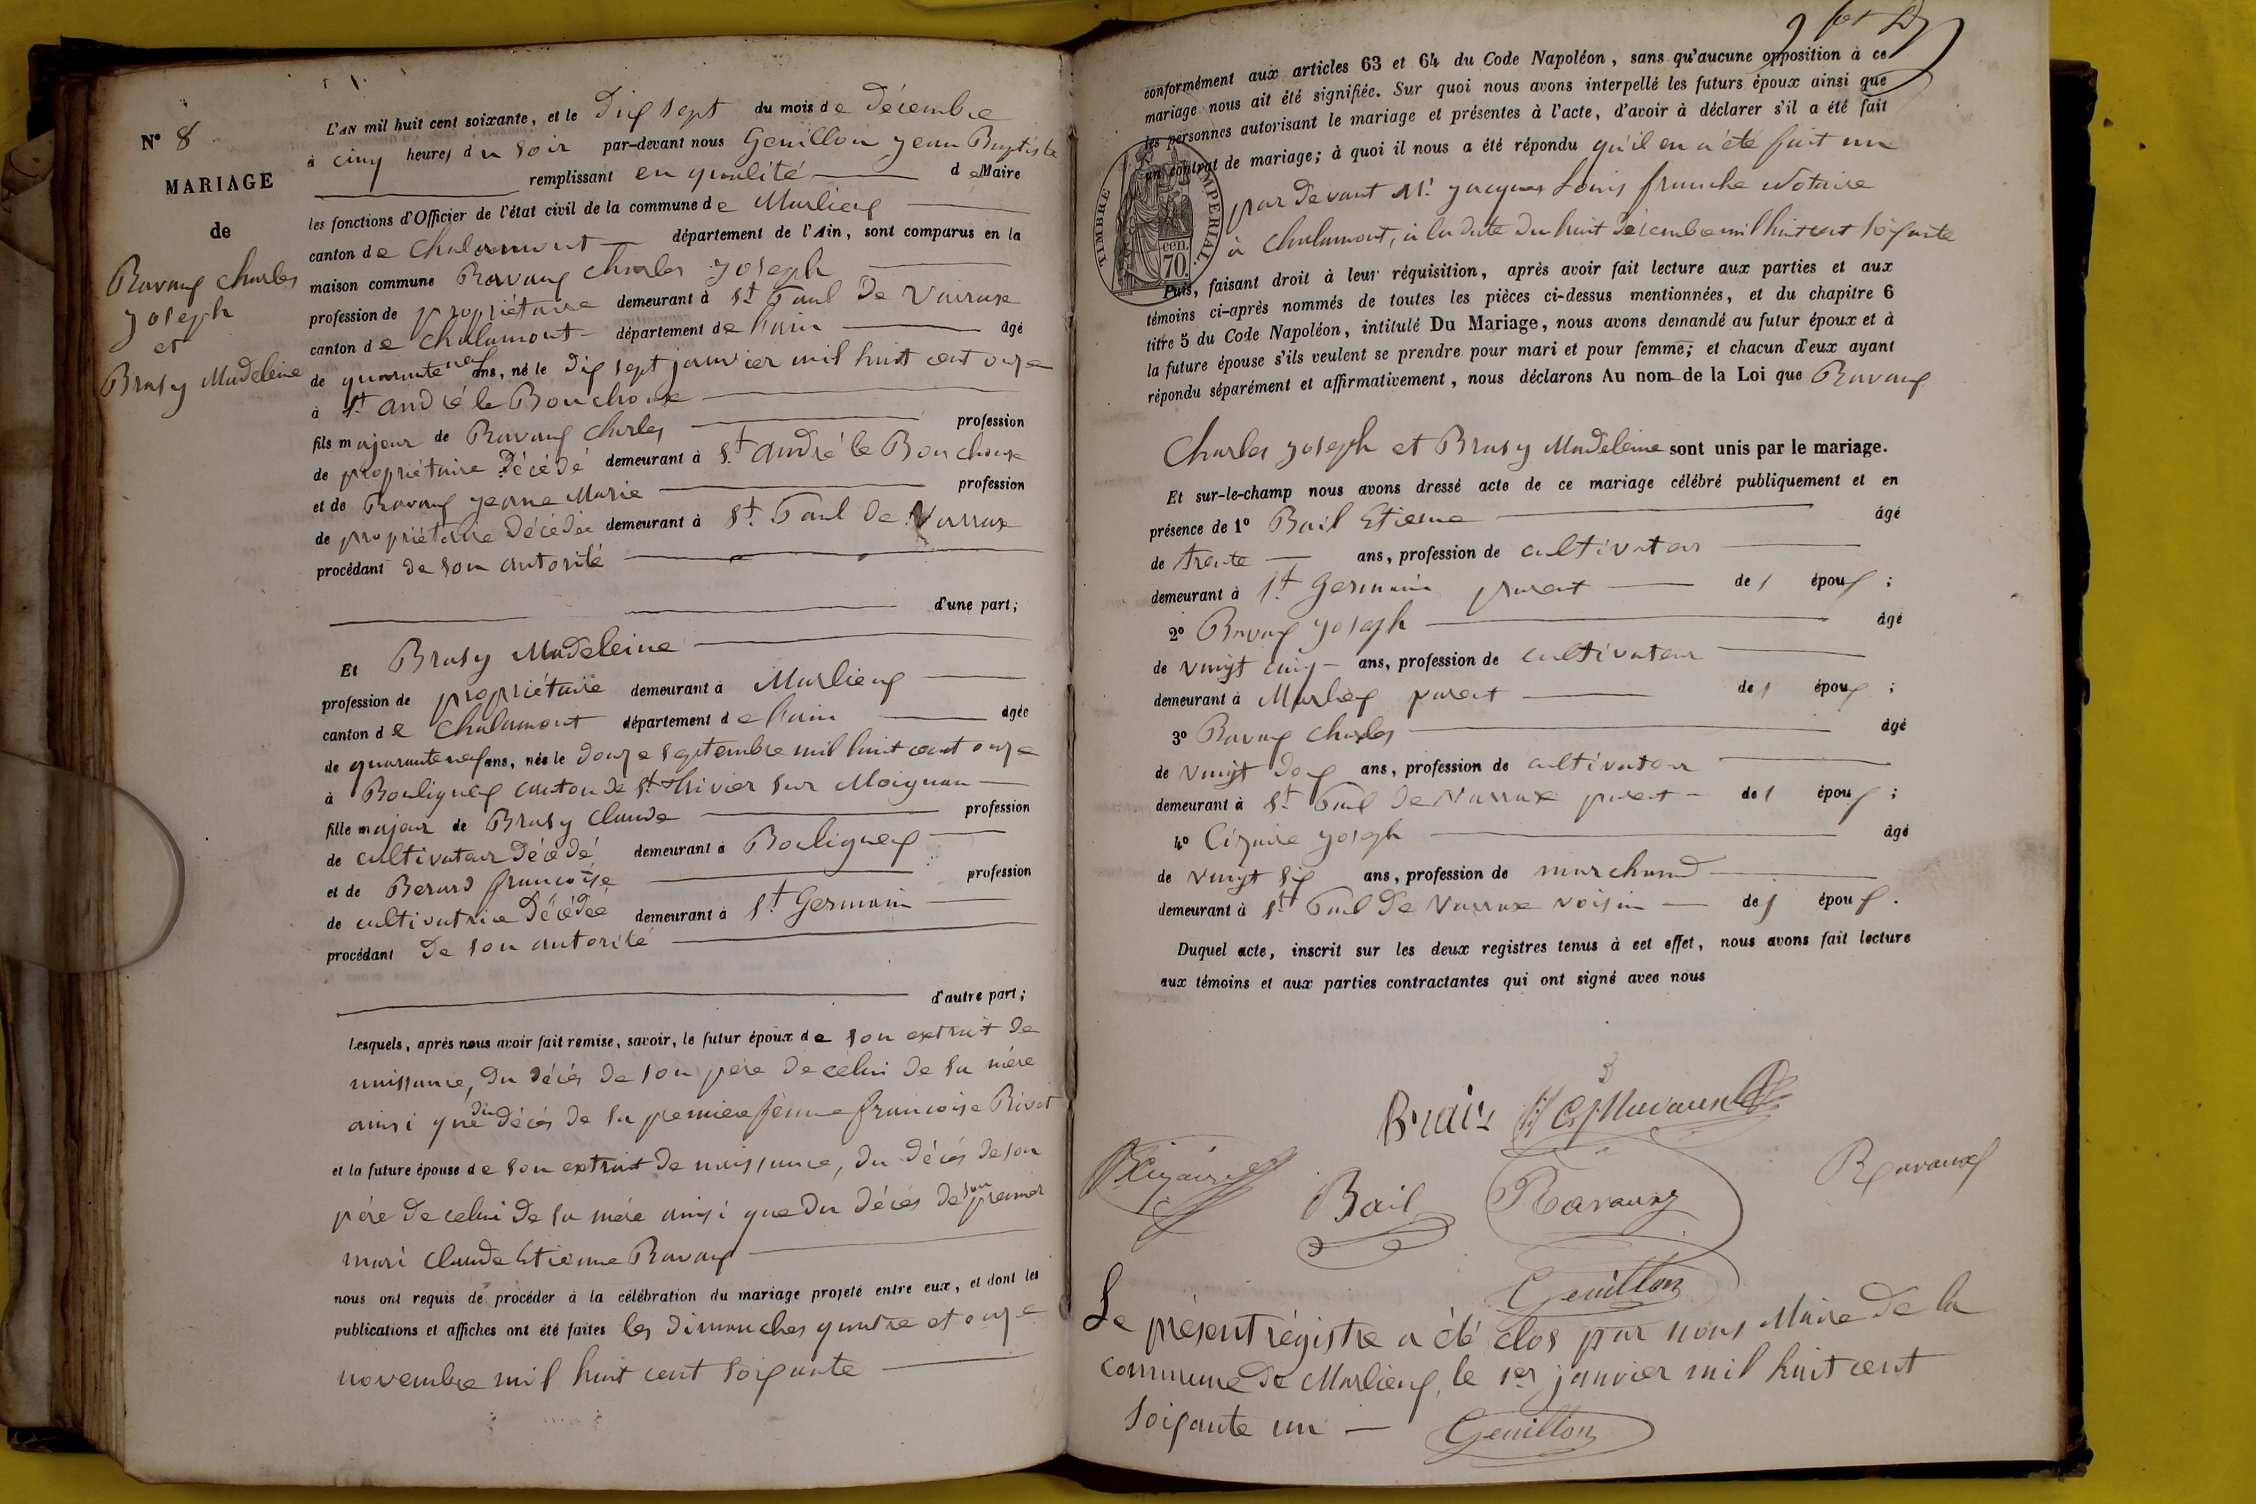 N° 8
MARIAGE
de
Ravaux Charles
Joseph
et
Brasy Madeleine
L'AN mil huit cent soixante, et le Dix sept du mois de Décembre
à cinq heures du soir par-devant nous Genillon Jean Baptiste
remplissant en qualité de Maire
les fonctions d'Officier de l'état civil de la commune de Marlieux
canton de Chalamont département de l'Ain, sont comparus en la
maison commune Ravaux Charles Joseph
profession de propriétaire demeurant à St Paul de Varax
canton de Chalamont département de l'ain âgé
de quarante neuf ans, né le dix sept janvier mil huit cent onze
à St andré le Bouchoux
fils majeur de Ravaux Charles profession
de propriétaire Décédé demeurant à St andré le Bouchoux
et de Ravaux Jeanne Marie profession
de propriétaire Décédée demeurant à St Paul de Varrax
procédant de son autorité
d'une part;
Et Brasy Madeleine
profession de propriétaire demeurant à Marlieux
canton de Chalamont département de l'ain âgée
de quarante neuf ans, née le douze septembre mil huit cent onze
à Bouligneux canton de St thivier sur Moignan
fille majeur de Brasy Claude profession
de cultivateur Décédé demeurant à Bouligneux
et de Berard françoise profession
de cultivatrice Décédée demeurant à St Germain
procédant de son autorité
d'autre part;
Lesquels, après nous avoir fait remise, savoir, le futur époux de son extrait de
naissance, du décès de son père de celui de sa mère
ainsi que du décès de sa première femme françoise Rivat
et la future épouse de son extrait de naissance, du décès de son
père de celui de sa mère ainsi que du décès de son premier
mari Claude Etienne Ravaux
nous ont requis de procéder à la célébration du mariage projeté entre eux, et dont les
publications et affiches ont été faites les dimanches quatre et onze
novembre mil huit cent soixante
conformément aux articles 63 et 64 du Code Napoléon, sans qu'aucune opposition à ce
mariage nous ait été signifiée. Sur quoi nous avons interpellé les futurs époux ainsi que
les personnes autorisant le mariage et présentes à l'acte, d'avoir à déclarer s'il a été fait
un contrat de mariage; à quoi il nous a été répondu qu'il en a été fait un
par devant Mr. Jacques Louis franche Notaire
à Chalamont, à la date du huit décembre mil huit cent soixante
TIMBRE IMPERIAL
70 cen.
Puis, faisant droit à leur réquisition, après avoir fait lecture aux parties et aux
témoins ci-après nommés de toutes les pièces ci-dessus mentionnées, et du chapitre 6
titre 5 du Code Napoléon, intitulé Du Mariage, nous avons demandé au futur époux et à
la future épouse s'ils veulent se prendre pour mari et pour femme; et chacun d'eux ayant
répondu séparément et affirmativement, nous déclarons Au nom de la Loi que Ravaux
Charles Joseph et Brasy Madeleine sont unis par le mariage.
Et sur-le-champ nous avons dressé acte de ce mariage célébré publiquement et en
présence de 1° Bail Etienne âgé
de trente ans, profession de cultivateur
demeurant à St Germain parent des époux;
2° Ravaux Joseph âgé
de vingt cinq ans, profession de cultivateur
demeurant à Marlieux parent des époux;
3° Ravaux Charles âgé
de vingt deux ans, profession de cultivateur
demeurant à St Paul de Varrax parent des époux;
4° Cizaire Joseph âgé
de vingt six ans, profession de marchand
demeurant à St Paul de Varrax voisin des époux.
Duquel acte, inscrit sur les deux registres tenus à cet effet, nous avons fait lecture
aux témoins et aux parties contractantes qui ont signé avec nous
Cizaire
Bail
Ravaux
Ravaux
Genillon
Le présent régistre a été clos par nous Maire de la
commune de Marlieux, le 1er janvier mil huit cent
soixante un
Genillon